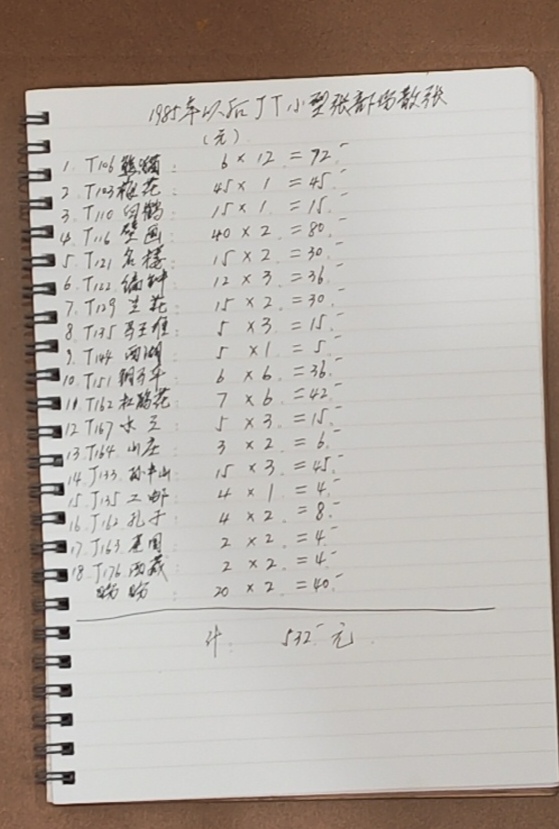 1985年以后JT小型张部份散张
(元)
1. T106 熊猫: 6 × 12 = 72.-
2 T103 梅花: 45 × 1 = 45.-
3 T110 白鹤: 15 × 1. = 15.-
4 T116 壁画: 40 × 2 = 80.-
5 T121 名楼: 15 × 2 = 30.-
6 T122 编钟: 12 × 3 = 36.-
7. T129 兰花: 15 × 2 = 30.-
8 T135 马王堆: 5 × 3 = 15.-
9 T144 西湖: 5 × 1 = 5.-
10 T151 铜马车: 6 × 6 = 36.-
11 T162 杜鹃花: 7 × 6 = 42.-
12 T167 水浒: 5 × 3 = 15.-
13 T164 山庄: 3 × 2 = 6.-
14. J133 孙中山 15 × 3 = 45.-
15 J135 工邮: 4 × 1 = 4.-
16 J162 孔子: 4 × 2 = 8.-
17. J163 建国: 2 × 2 = 4.-
18 J176 西藏: 2 × 2 = 4.-
: 20 × 2 = 40.-
计: 532.- 元